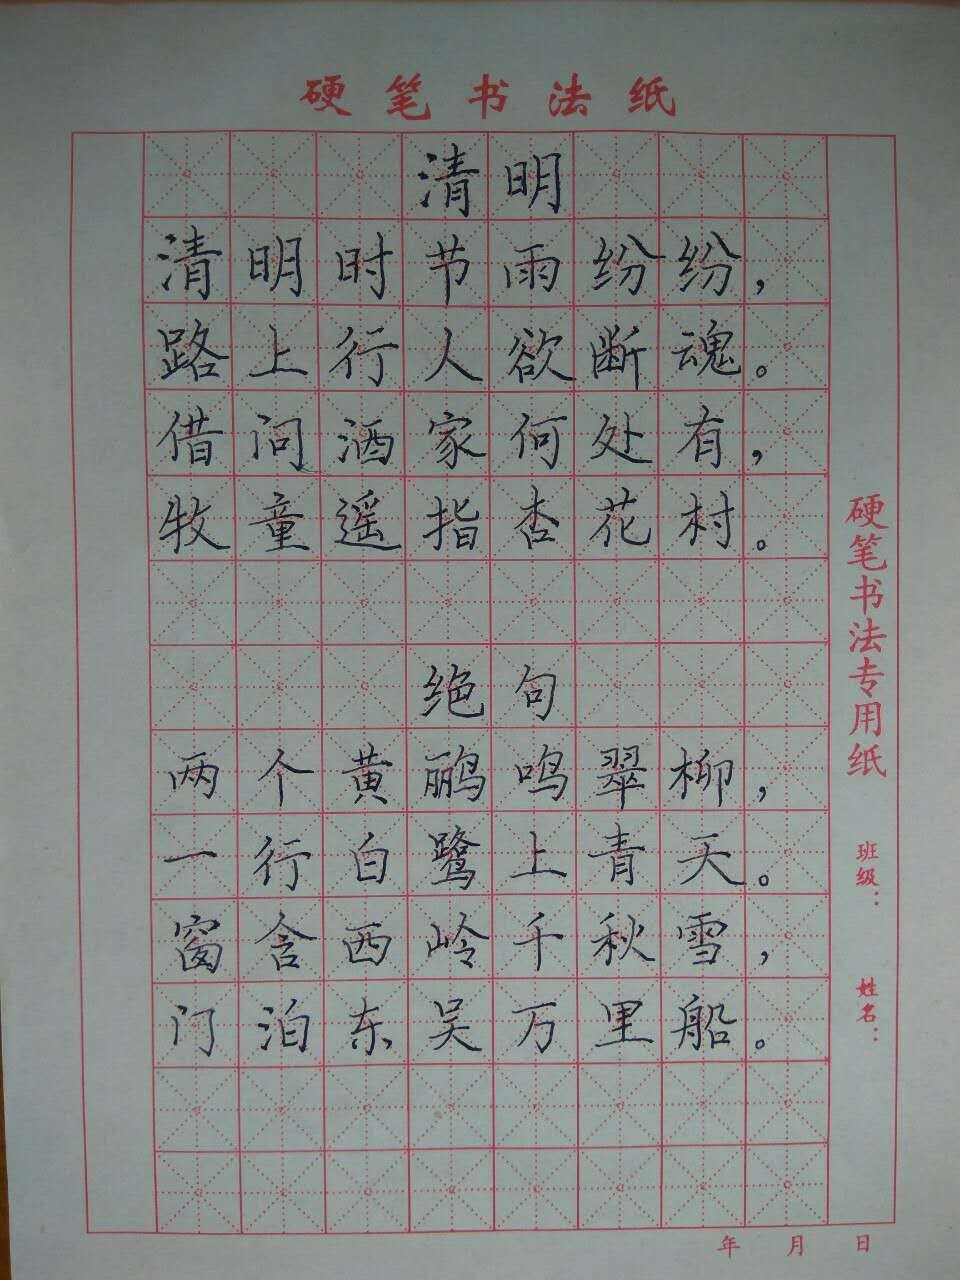 硬笔书法纸
清明
清明时节雨纷纷，
路上行人欲断魂。
借问酒家何处有，
牧童遥指杏花村。
绝句
两个黄鹂鸣翠柳，
一行白鹭上青天。
窗含西岭千秋雪，
门泊东吴万里船。
硬笔书法专用纸
班级：
姓名：
年 月 日